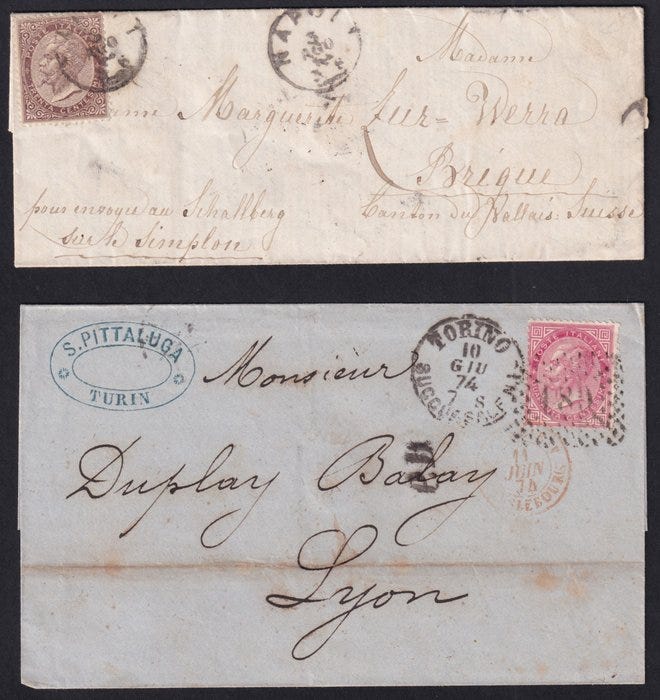 NAPOLI
POSTE ITALIANE
TRENTA CENTESIMI
Madame
Marguerite Zur=Werra
Brigue
Canton du Vallais. Suisse
pour envoyer au Schallberg
sur le Simplon
S. PITTALUGA
TURIN
TORINO
10
GIU
74
7 S
SUCCURSALE
POSTE ITALIANE
Monsieur
Duplay Balay
Lyon
11
JUIN
74